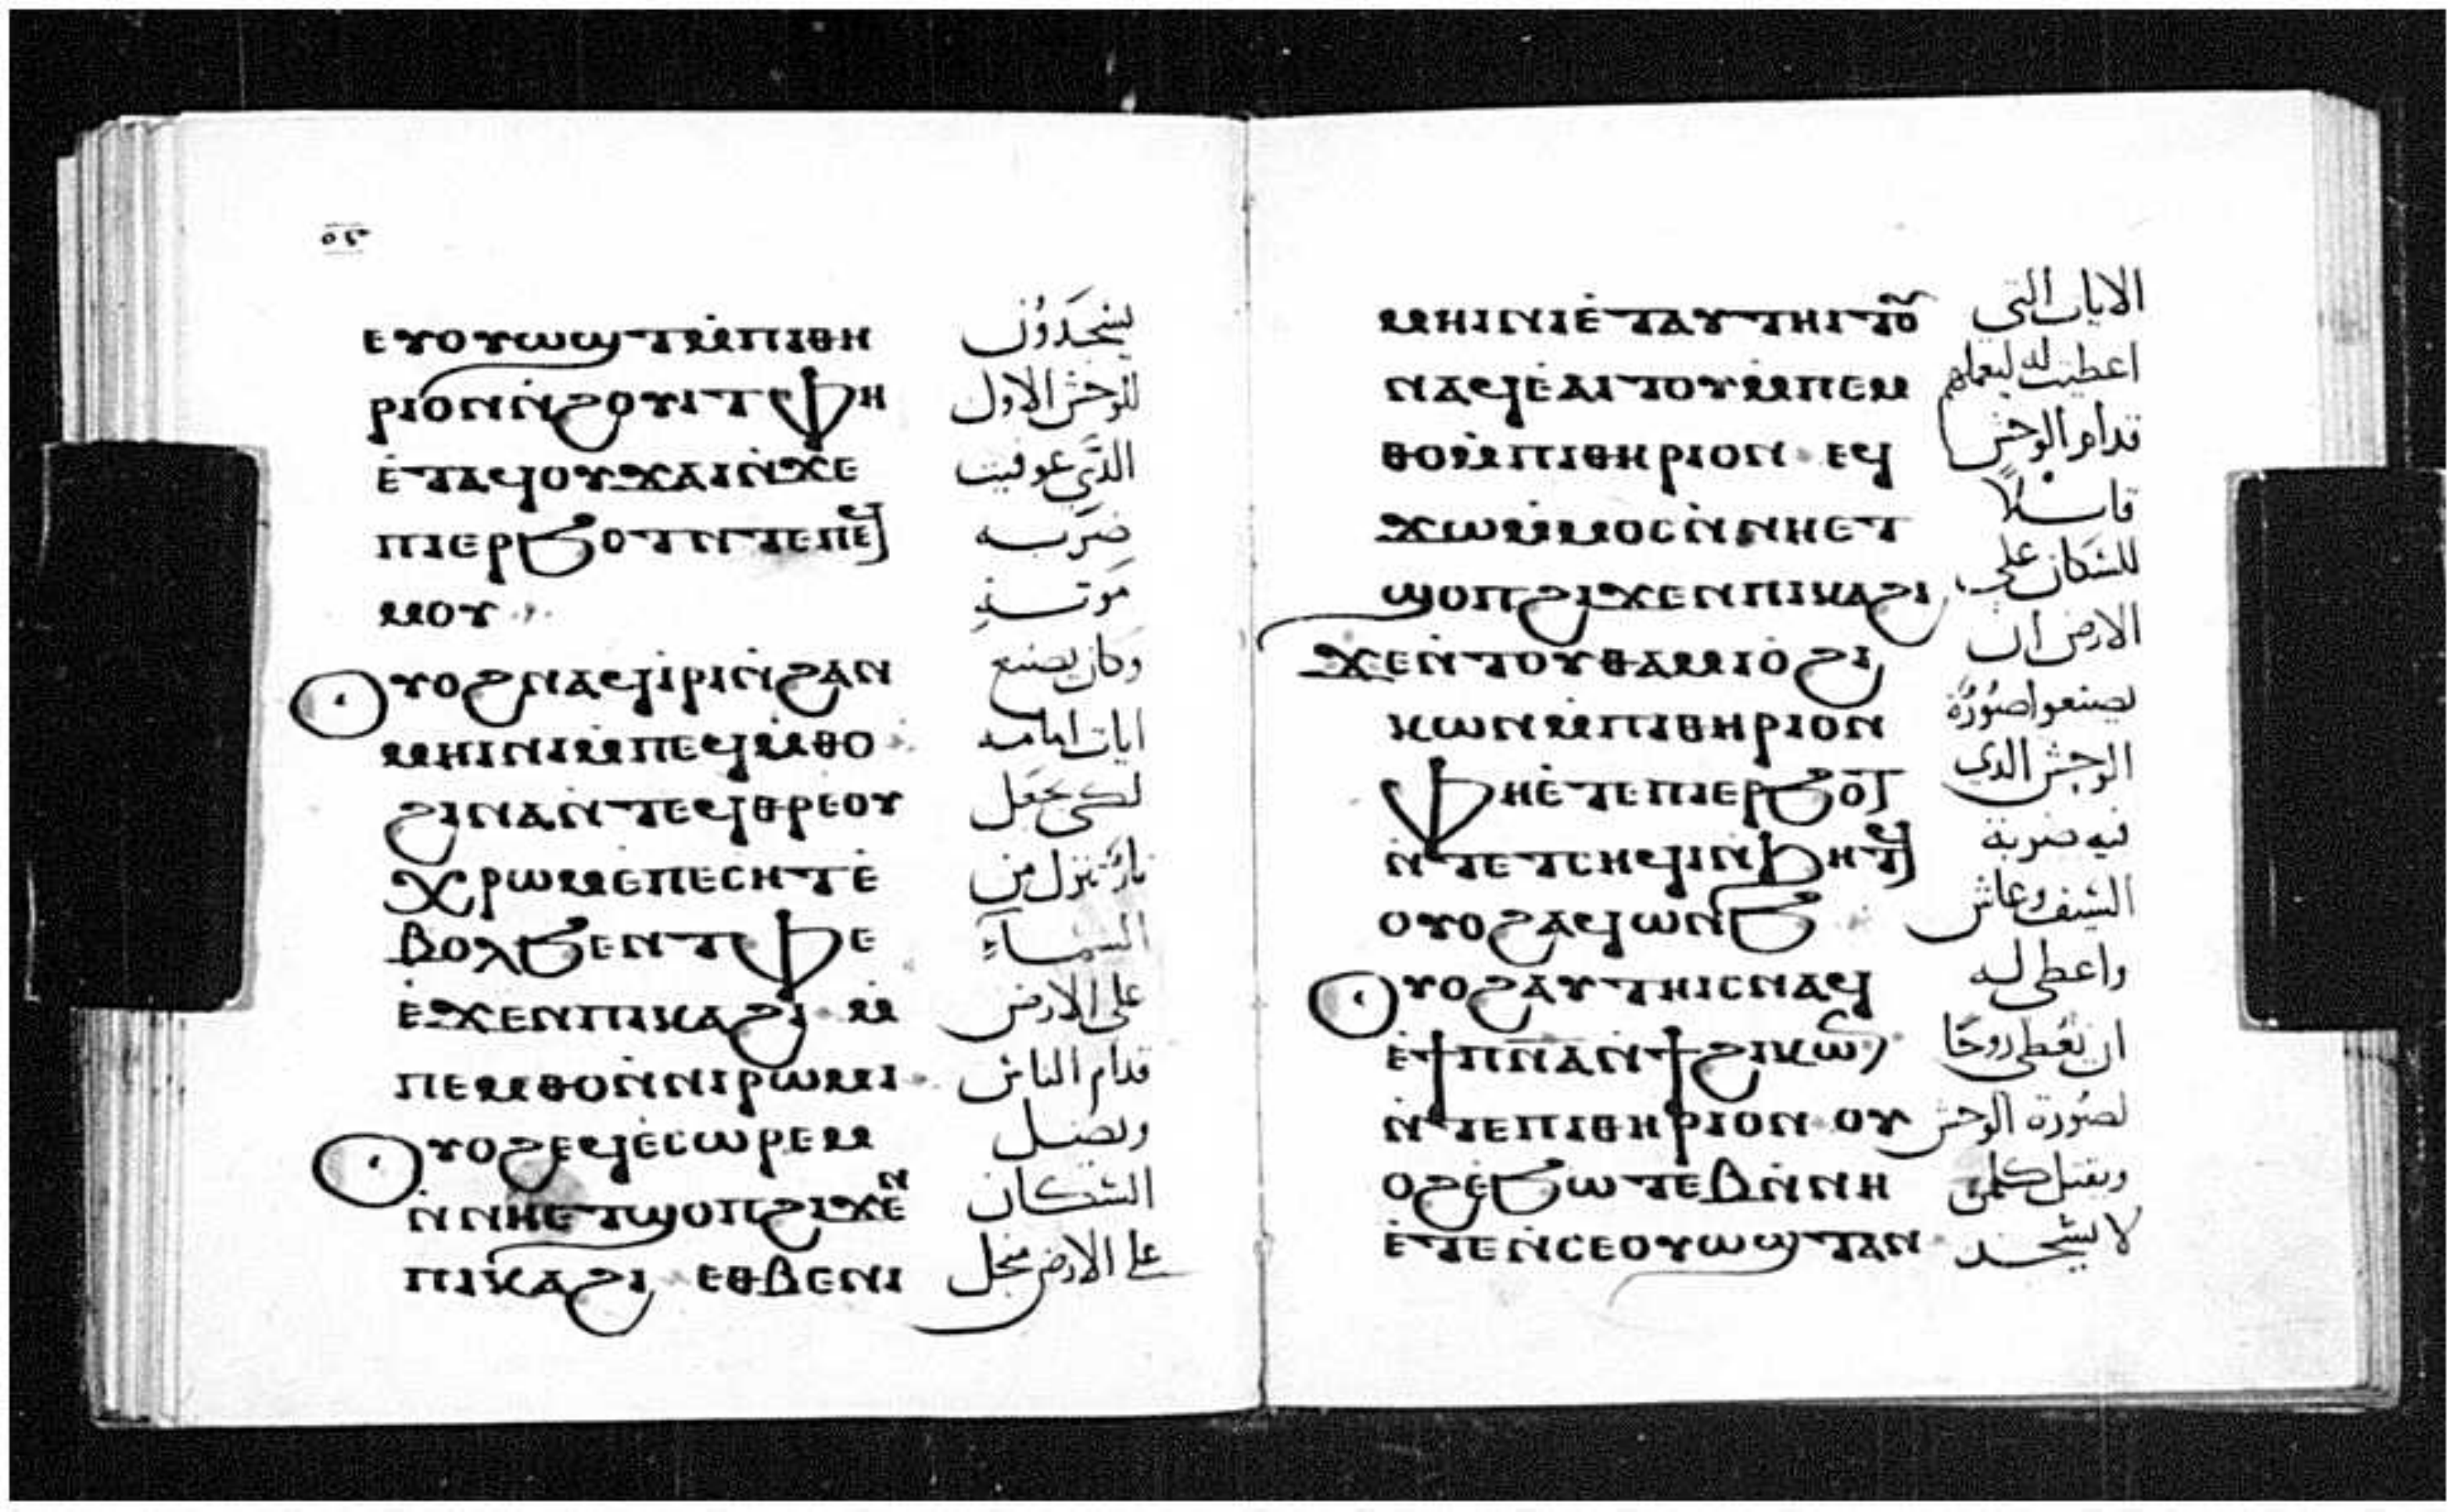 ⲉⲩⲟⲩⲱϣⲧⲙ̀ⲡⲓⲑⲏ ليسجدون
ⲣⲓⲟⲛⲛ̀ϩⲟⲩⲓⲧⲫⲏ للوحش الاول
ⲉ̀ⲧⲁϥⲟⲩϫⲁⲓⲛ̀ϫⲉ الذي عوفيت
ⲡⲓⲉⲣϧⲟⲧⲛ̀ⲧⲉⲡⲉϥ ضربه
ⲙⲟⲩ موته
ⲟⲩⲟϩⲛⲁϥⲓ̀ⲣⲓⲛ̀ϩⲁⲛ وكان يصنع
ⲙⲏⲓⲛⲓⲙ̀ⲡⲉϥⲙ̀ⲑⲟ ايات امامه
ϩⲓⲛⲁⲛ̀ⲧⲉϥⲑⲣⲉⲟⲩ لكي يجعل
ⲭⲣⲱⲙⲉ̀ⲡⲉⲥⲏⲧⲉ̀ نار تنزل من
ⲃⲟⲗϧⲉⲛⲧⲫⲉ السماء
ⲉ̀ϫⲉⲛⲡⲓⲕⲁϩⲓ ⲙ̀ على الارض
ⲡⲉⲙⲑⲟⲛ̀ⲛⲓⲣⲱⲙⲓ قدام الناس
ⲟⲩⲟϩⲉϥⲉ̀ⲥⲱⲣⲉⲙ ويضل
ⲛ̀ⲛⲏⲉⲧϣⲟⲡϩⲓϫⲉⲛ السكان
ⲡⲓⲕⲁϩⲓ ⲉⲑⲃⲉⲛⲓ على الارض منجل
ⲙⲏⲓⲛⲓⲉ̀ⲧⲁⲩⲧⲏⲓⲧⲟⲩ الايات التي
ⲛⲁϥⲉ̀ⲁⲓⲧⲟⲩⲙ̀ⲡⲉⲙ اعطيت له ليعملهم
ⲑⲟⲙ̀ⲡⲓⲑⲏⲣⲓⲟⲛ ⲉϥ قدام الوحش
ϫⲱⲙ̀ⲙⲟⲥⲛ̀ⲛⲏⲉⲧ قايلاً
ϣⲟⲡϩⲓϫⲉⲛⲡⲓⲕⲁϩⲓ للسكان على
ϫⲉⲛ̀ⲧⲟⲩⲑⲁⲙⲓⲟ̀ϩⲓ الارض ان
ⲕⲱⲛⲙ̀ⲡⲓⲑⲏⲣⲓⲟⲛ يصنعوا صورة
ⲫⲏⲉ̀ⲧⲉⲡⲓⲉⲣϧⲟⲧ الوحش الدي
ⲛ̀ⲧⲉⲧⲥⲏϥⲓⲛ̀ϧⲏⲧϥ فيه ضربة
ⲟⲩⲟϩⲁϥⲱⲛϧ السيف وعاش
ⲟⲩⲟϩⲁⲩⲧⲏⲓⲥⲛⲁϥ واعطى له
ⲉ̀ϯⲡⲛⲁⲛ̀ϯϩⲓⲕⲱⲛ ان يعطي روحًا
ⲛ̀ⲧⲉⲡⲓⲑⲏⲣⲓⲟⲛ ⲟⲩ لصورة الوحش
ⲟϩⲉ̀ϧⲱⲧⲉⲃⲛ̀ⲛⲏ ويقتل كلمن
ⲉ̀ⲧⲉⲛ̀ⲥⲉⲟⲩⲱϣⲧⲁⲛ لا يسجد